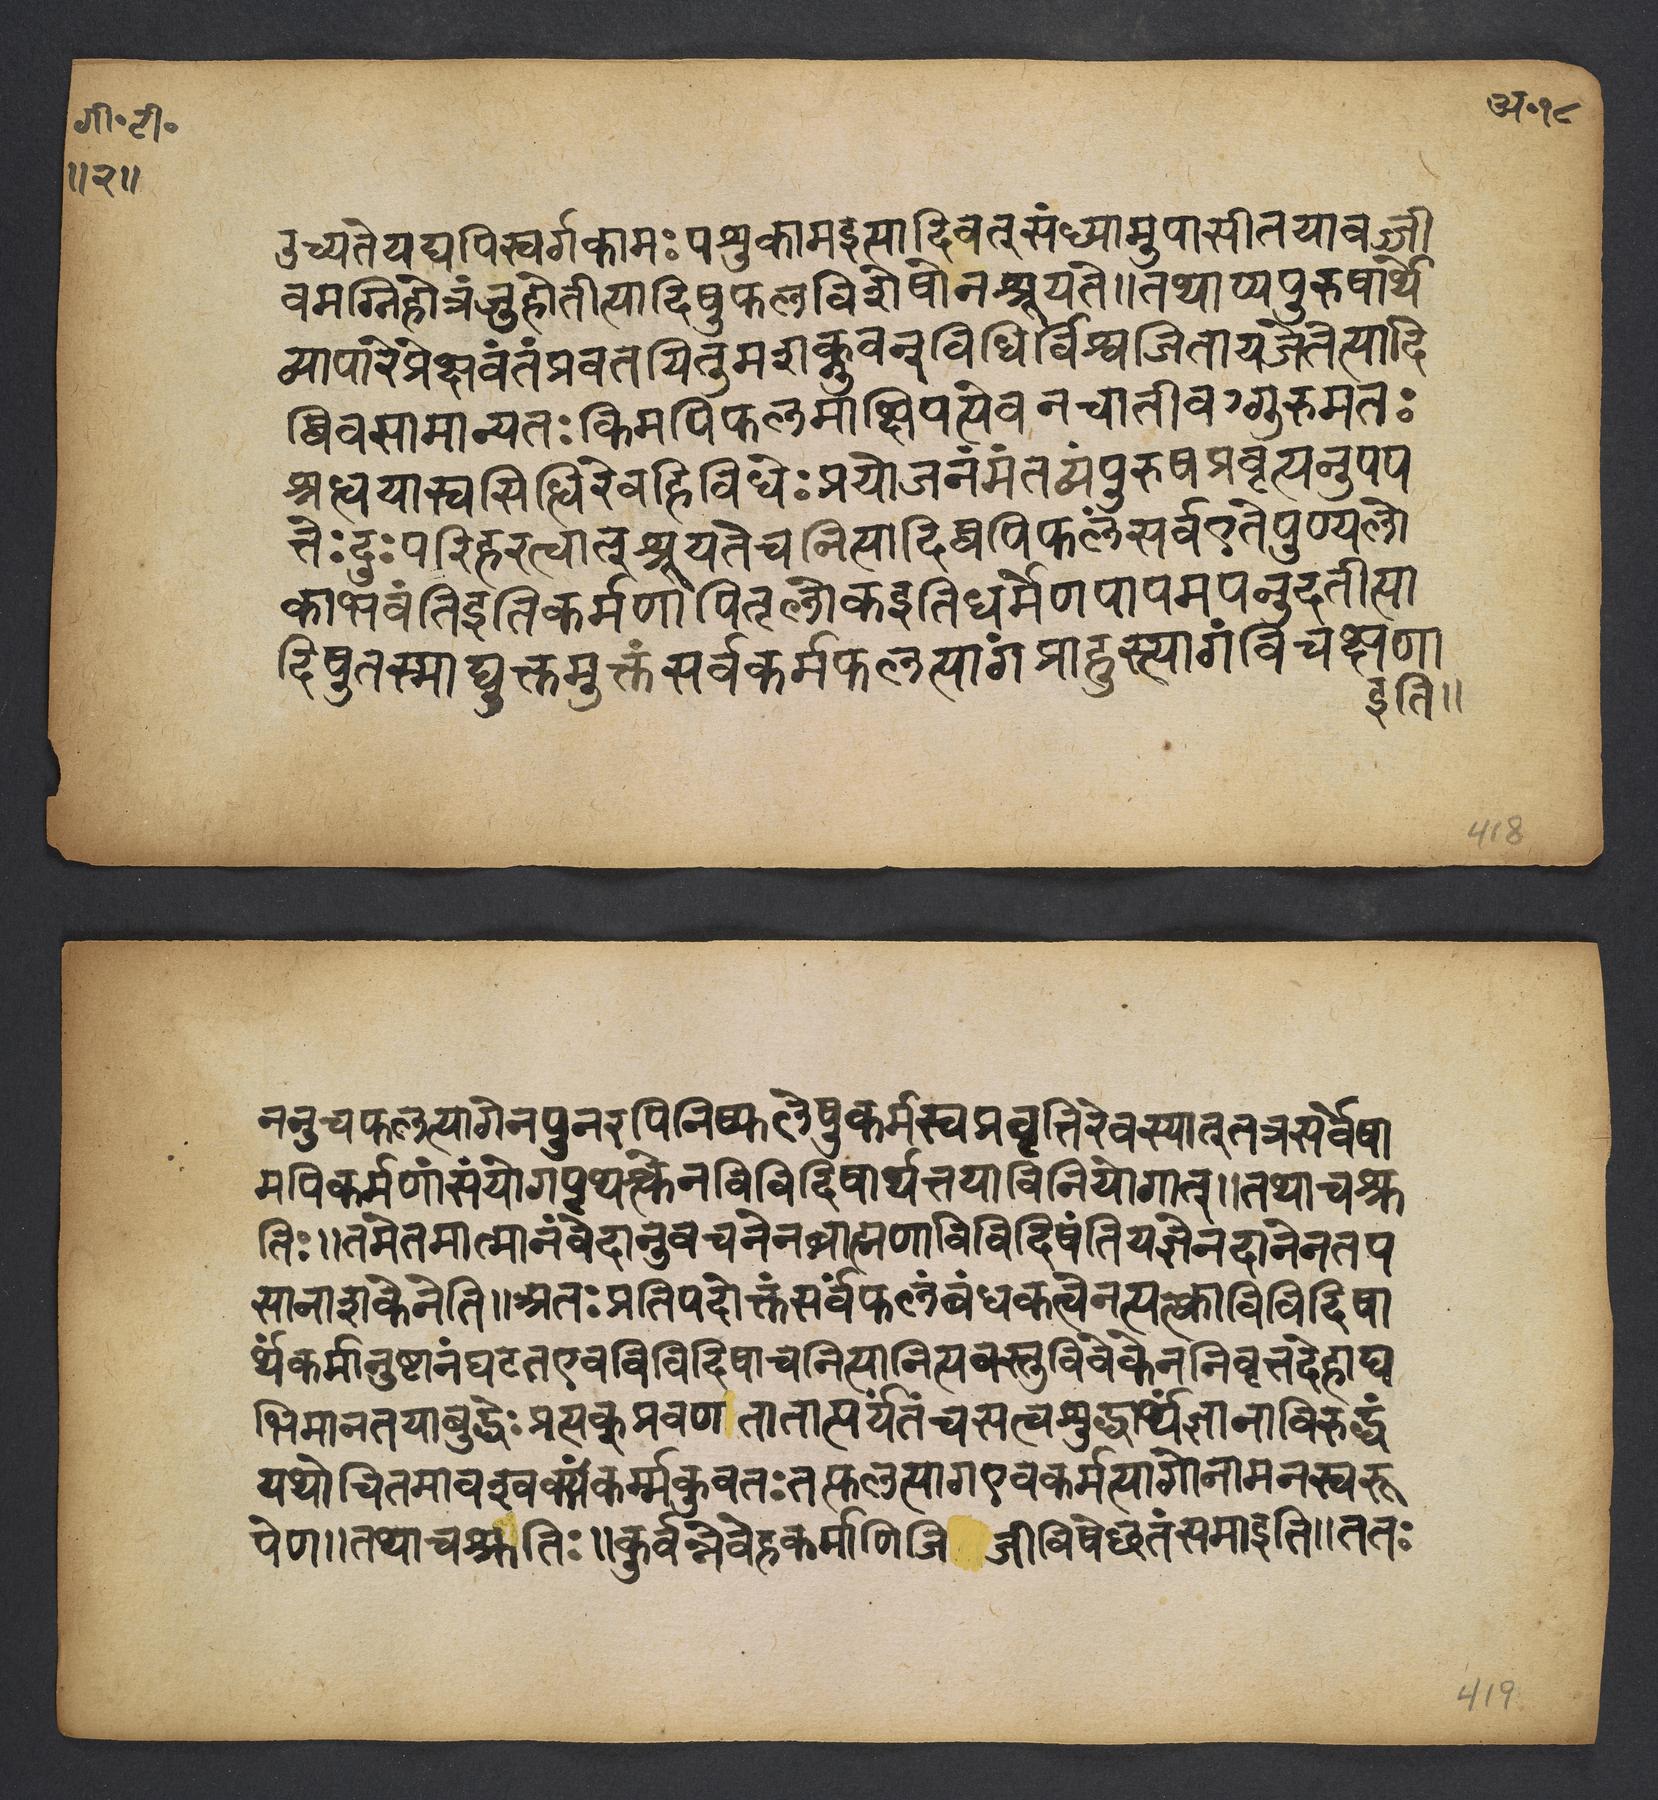 गी॰टी॰
॥२॥
अ॰१८
उच्यतेयद्यपिस्वर्गकामःपशुकामइत्यादिवत्संध्यामुपासीतयावज्जी
वमग्निहोत्रंजुहोतीत्यादिषुफलविशेषोनश्रूयते॥तथाप्यपुरुषार्थे
व्यापारेप्रेक्षावंतंप्रवतयितुमशक्नुवन्विधिर्विश्वजितायजेतेत्यादि
ष्विवसामान्यतःकिमपिफलमाक्षिपत्येवनचातीवग्गुरुमतः
श्रध्वयास्वसिध्धिरेवहिविधेःप्रयोजनंमंतव्यंपुरुषप्रवृत्यनुपप
त्तेःदुःपरिहरत्वात्श्रूयतेचनित्यादिष्वपिफलंसर्वएतेपुण्यलो
काभवंतिइतिकर्मणापितृलोकइतिधर्मेणपापमपनुदतीत्या
दिषुतस्माद्युक्तमुक्तंसर्वकर्मफलत्यागंप्राहुस्त्यागंविचक्षणा
इति॥
418
ननुचफलत्यागेनपुनरपिनिष्फलेषुकर्मस्वप्रवृत्तिरेवस्यात्तत्रसर्वेषा
मपिकर्मणांसंयोगपृथक्त्वेनविविदिषार्थत्तयाविनियोगात्॥तथाचश्रु
तिः॥तमेतमात्मानंवेदानुवचनेनब्राह्मणाविविदिषंतियज्ञेनदानेनतप
सानाशकेनेति॥अतःप्रतिपदोक्तंसर्वंफलंबंधकत्वेनत्यक्त्वाविविदिषा
र्थंकर्मानुष्टानंघटतएवविविदिषाचनित्यानित्यवस्तुविवेकेननिवृत्तदेहाद्य
भिमानतयाबुद्धेःप्रत्यक्प्रवणतातात्पर्यंतंचसत्वशुद्ध्यर्थंज्ञानाविरुद्धं
यथोचितमावश्वक्यंकर्म्मकुवतःतत्फलत्यागएवकर्मत्यागोनामनस्वरू
पेण॥तथाचश्रुतिः॥कुर्वन्नेवेहकर्माणिजिजीविषेछतंसमाइति॥ततः
419